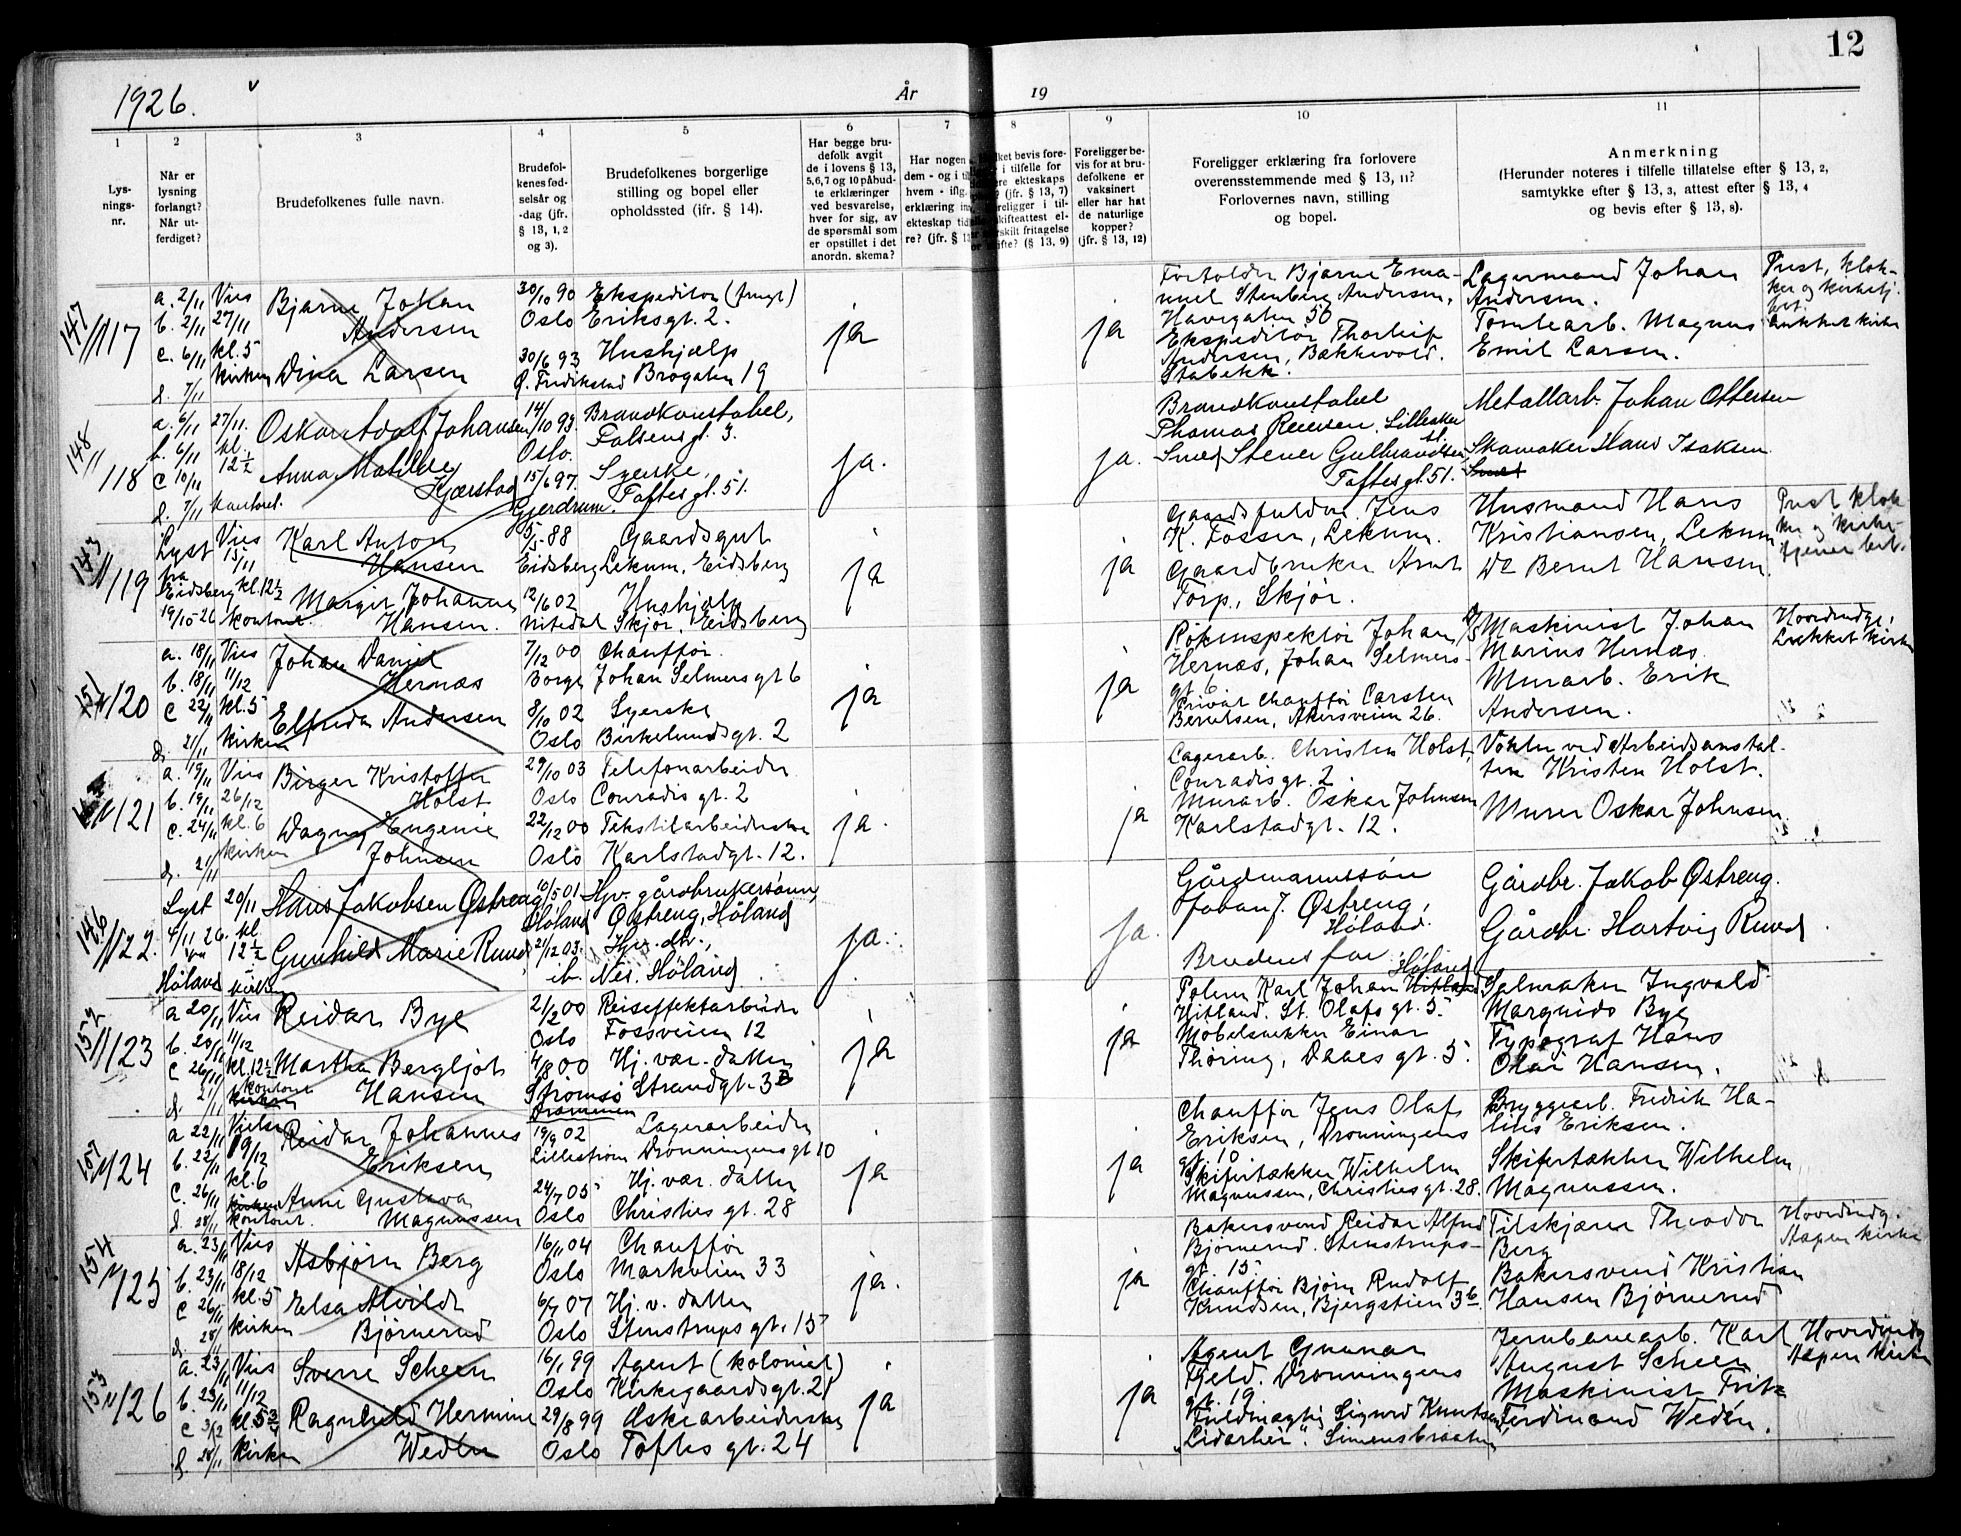 12
1926.
År
19
1
2
3
4
5
6
7
8
9
10
11
Lys-
nings-
nr.
Når er
lysning
forlangt?
Når ut-
ferdiget?
Brudefolkenes fulle navn.
Brudefol-
kenes fød-
selsår og
-dag (jfr.
§ 13, 1, 2
og 3).
Brudefolkenes borgerlige
stilling og bopel eller
opholdssted (jfr. § 14).
Har begge bru-
defolk avgit
de i lovens § 13,
5,6,7 og 10 påbud-
te erklæringer
ved besvarelse,
hver for sig, av
de spørsmål som
er opstillet i det
anordn. skema?
Har nogen
dem - og i
hvem - iflg.
erklæring
ekteskap
re? (jfr. §
bevis fore-
i tilfelle for
ekteskaps
(jfr. § 13, 7)
i til-
skifteattest el-
fritagelse
(§ 13, 9)
Foreligger be-
vis for at bru-
defolkene er
vaksinert
eller har hat
de naturlige
kopper?
(jfr. § 13, 12)
Foreligger erklæring fra forlovere
overensstemmende med § 13, 11?
Forlovernes navn, stilling
og bopel.
Anmerkning
(Herunder noteres i tilfelle tillatelse efter § 13, 2,
samtykke efter § 13, 3, attest efter § 13, 4
og bevis efter § 13, 8).
147
117
a. 2/11
b. 2/11
c. 6/11
d. 7/11
Vies
27/11
kl. 5
kirken
Bjarne Johan
Andersen
Dina Larsen
30/10 90
Oslo
30/6 93
Ø. Fredrikstad
Ekspeditør (frugt)
Eriksgt. 2.
Hushjælp
Brogaten 19
ja
ja
Bjarne Ema-
nuel Stenberg Andersen,
Havegaten 50
Ekspeditør Thorleif
Andersen, Bækkevold.
Stabekk.
Lagermand Johan
Andersen.
Tomtearb. Magnus
Emil Larsen.
Prest, klok-
ker og kirketj.
bet.
148
118
a. 6/11
b. 6/11
c 10/11
d. 7/11
27/11.
kl.
12½
kontoret.
Oskar Adolf Johansen
Anna Matilde
Kjærstad
14/10 93.
Oslo.
15/6 97.
Gjerdrum.
Brandkonstabel,
Falsensgt. 3.
Syerske,
Toftesgt. 51.
ja.
ja.
Brandkonstabel
Thomas Reiersen, Lilleaker
st.
Smed Stener Gulbrandsen,
Toftesgt. 51.
Metallarb. Johan Ottersen
Skomaker Hans Isaksen
Smed
143
119
Lyst
fra
Eidsberg
19/10-26
Vies
15/11
kl. 12½
kontoret.
Karl Anton
Hansen
Margit Johanne
Hansen.
5/5-88
Eidsberg
12/6 02
Nitedal
Gaardsgut
Lekum, Eidsberg
Hushjælp
Skjør, Eidsberg
ja
ja
Jens
K. Fossen, Lekum.
Gaardbruker Arnt
Torp., Skjør.
Husmand Hans
Kristiansen, Lekum
Do Bernt Hansen.
Prest klok-
ker og kirke-
tjener bet.
151
120
a. 18/11
b. 18/11
c 22/11
d. 21/11
Vies
11/12
kl. 5
kirken
Johan Daniel
Hernæs
Elfrida Andersen
7/12 00
Borge
8/10 02
Oslo
Chauffør.
Johan Selmersgt 6
Syerske
Birkelundsgt. 2
ja
ja
Røkinspektør Johan
Hernæs, Johan Selmers-
gt. 6
Privat chauffør Carsten
Berntsen, Akersveien 26.
Maskinist Johan
Marius Hernæs.
Murarb. Erik
Andersen.
Hovedindg.
Lukket kirke
121
a. 19/11
b. 19/11
c. 24/11
d. 21/11
Vies
26/12
kl. 6
kirken
Birger Kristoffer
Holst
Dagny Eugenie
Johnsen
29/10 03
Oslo
22/12 00
Oslo
Telefonarbeider
Conradis gt. 2
Tekstilarbeiderske
Karlstadgt. 12.
ja.
ja
Lagerarb. Christen Holst,
Conradisgt. 2.
Murarb. Oskar Johnsen
Karlstadgt. 12.
Vokter ved Arbeidsanstal-
ten Kristen Holst.
Murer Oskar Johnsen.
146
122.
Lyst
4/11 26.
fra
Høland
20/11
kl.
12½
kirken
Hans Jakobsen Østreng
Gunhild Marie Rund
10/5 01
Høland
21/12 03.
ib.
Hjv. gårdbrukersønn,
Østreng, Høland
Hjv. dtr.,
Nes. Høland
ja.
ja.
Gårdmannssøn
Johan J. Østreng,
Høland.
Brudens far
Høland
Gårdbr. Jakob Østreng.
Gårdbr. Hartvig Rund
152
123
a 20/11
b. 20/11
c 26/11
d. 21/11
Vies
11/12
kl. 12½
kontoret
kirken
Reidar Bye
Martha Bergljot
Hansen
21/2 00
Oslo
4/8 00
Strømsø
Drammen
Reiseffektarbeider
Fossveien 12
Hj. vær. datter
Strandgt. 3B
ja
ja
Polerer Karl Johan Hitland
Hitland. St. Olafs gt. 5.
Møbelsnekker Einar
Thøring, Daaes gt. 5.
Salmaker Ingvald
Marquids Bye
Typograf Hans
Olai Hansen.
157
124
a 22/11
b. 22/11
c. 26/11
d. 28/11
Vielse
19/12
kl. 6
kirken
kontoret.
Reidar Johannes
Eriksen
Anni Gustava
Magnussen
19/9 02
Lillestrøm
24/7 05
Oslo
Lagerarbeider
Dronningensgt 10
Hj. vær. datter
Christies gt. 28
ja
ja
Chauffør Jens Olaf
Eriksen, Dronningens
gt. 10
Skifertækker Wilhelm
Magnussen, Christies gt. 28.
Bryggearb. Fredrik Ha-
lius Eriksen.
Skifertækker Wilhelm
Magnussen.
154
125
a. 23/11
b. 23/11
c 26/11
d. 28/11
Vies
18/12
kl. 5
kirken
Asbjørn Berg
Elsa Alvilde
Bjørnerud
16/11 04
Oslo
6/7 07
Oslo
Chauffør
Markveien 33
Hj. v. datter
Stenstrups gt. 15
ja.
ja
Bakersvend Reidar Alfred
Bjørnerud. Stenstrups-
gt. 15.
Chauffør Bjørn Rudolf
Knudsen, Bjergstien 3b.
Tilskjærer Theodor
Berg
Bakersvend Kristian
Hansen Bjørnerud
Hovedindg.
Aapen kirke
153
126
a. 23/11
b. 23/11
c 3/12
d. 28/11
Vies
11/12
kl 5 3/4
kirken
Sverre Scheen
Ragnhild Hermine
Wedén
16/1 99
Oslo
29/8 99
Oslo
Agent (kolonial)
Kirkegaardsgt. 21
Æskearbeiderske
Toftes gt. 24
ja
ja
Agent Gunnar
Fjeld. Dronningens
gt. 19
Fuldmægtig Sigurd Knutsen,
"Lidarhei". Simensbraaten
Jernbanearb. Karl
August Scheen
Maskinist Fritz
Ferdinand Wedén.
Hovedindg
Aapen kirke